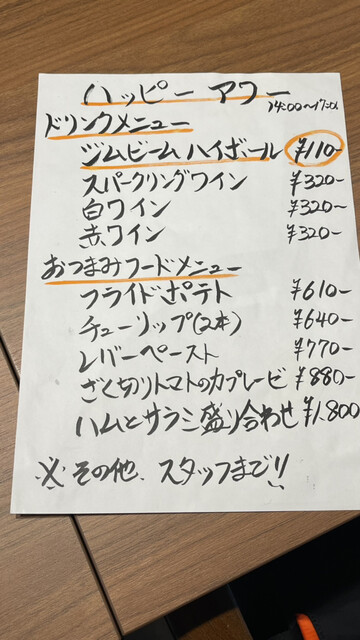 ハッピー アワー
14:00〜17:00
ドリンクメニュー
ジムビーム ハイボール ¥110-
スパークリングワイン ¥320-
白ワイン ¥320-
赤ワイン ¥320-
おつまみフードメニュー
フライドポテト ¥610-
チューリップ(2本) ¥640-
レバーペースト ¥770-
ざく切りトマトのカプレーゼ ¥880-
ハムとサラミ盛り合わせ ¥1.800
※その他、スタッフまで!!